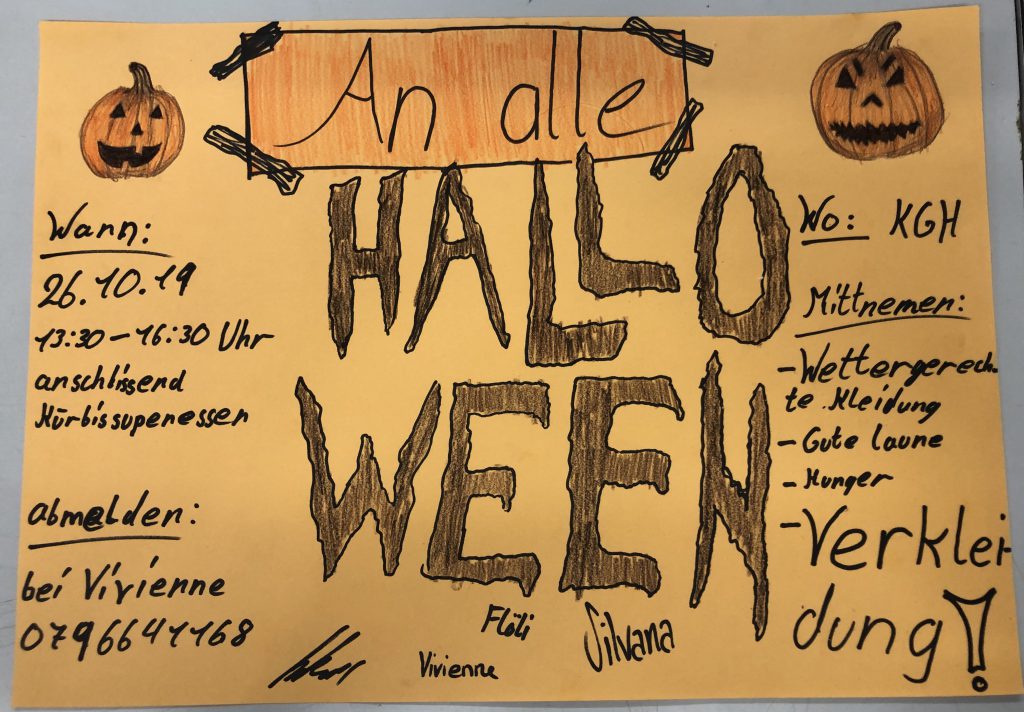 An alle
HALLO
WEEN
Wann:
26.10.19
13:30 – 16:30 Uhr
anschlissend
Kürbissupenessen
abmelden:
bei Vivienne
0796641168
Wo: KGH
Mittnemen:
- Wettergerech-
te Kleidung
- Gute laune
- Hunger
- Verklei-
dung!
Flöli
Silvana
Vivienne